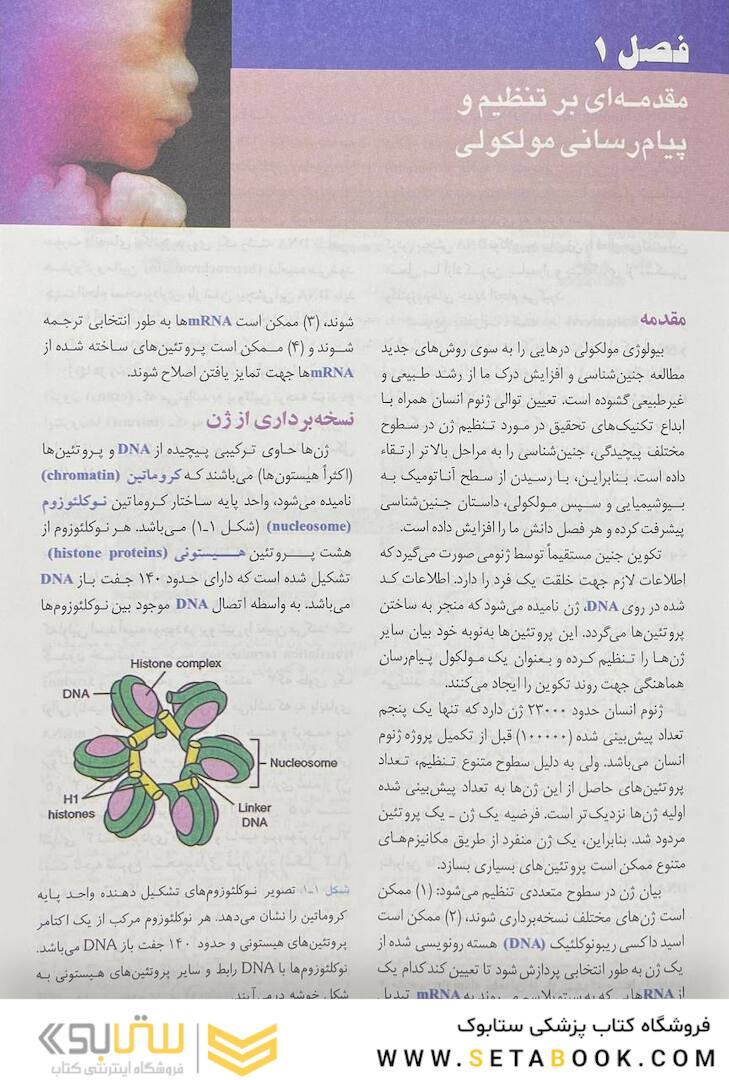 فصل ۱
مقدمه‌ای بر تنظیم و
پیام‌رسانی مولکولی
مقدمه
بیولوژی مولکولی درهایی را به سوی روش‌های جدید
مطالعه جنین‌شناسی و افزایش درک ما از رشد طبیعی و
غیرطبیعی گشوده است. تعیین توالی ژنوم انسان همراه با
ابداع تکنیک‌های تحقیق در مورد تنظیم ژن در سطوح
مختلف پیچیدگی، جنین‌شناسی را به مراحل بالاتر ارتقاء
داده است. بنابراین، با رسیدن از سطح آناتومیک به
بیوشیمیایی و سپس مولکولی، داستان جنین‌شناسی
پیشرفت کرده و هر فصل دانش ما را افزایش داده است.
تکوین جنین مستقیماً توسط ژنومی صورت می‌گیرد که
اطلاعات لازم جهت خلقت یک فرد را دارد. اطلاعات کد
شده در روی DNA، ژن نامیده می‌شود که منجر به ساختن
پروتئین‌ها می‌گردد. این پروتئین‌ها به‌نوبه خود بیان سایر
ژن‌ها را تنظیم کرده و بعنوان یک مولکول پیام‌رسان
هماهنگی جهت روند تکوین را ایجاد می‌کنند.
ژنوم انسان حدود ۲۳۰۰۰ ژن دارد که تنها یک پنجم
تعداد پیش‌بینی شده (۱۰۰۰۰۰) قبل از تکمیل پروژه ژنوم
انسان می‌باشد. ولی به دلیل سطوح متنوع تنظیم، تعداد
پروتئین‌های حاصل از این ژن‌ها به تعداد پیش‌بینی شده
اولیه ژن‌ها نزدیک‌تر است. فرضیه یک ژن ـ یک پروتئین
مردود شد. بنابراین، یک ژن منفرد از طریق مکانیزم‌های
متنوع ممکن است پروتئین‌های بسیاری بسازد.
بیان ژن در سطوح متعددی تنظیم می‌شود: (۱) ممکن
است ژن‌های مختلف نسخه‌برداری شوند، (۲) ممکن است
اسید داکسی ریبونوکلئیک (DNA) هسته رونویسی شده از
یک ژن به طور انتخابی پردازش شود تا تعیین کند کدام یک
از RNAهایی که به سیتوپلاسم می‌روند به mRNA تبدیل
شوند، (۳) ممکن است mRNAها به طور انتخابی ترجمه
شوند و (۴) ممکن است پروتئین‌های ساخته شده از
mRNAها جهت تمایز یافتن اصلاح شوند.
نسخه‌برداری از ژن
ژن‌ها حاوی ترکیبی پیچیده از DNA و پروتئین‌ها
(اکثراً هیستون‌ها) می‌باشند که کروماتین (chromatin)
نامیده می‌شود، واحد پایه ساختار کروماتین نوکلئوزوم
(nucleosome) (شکل ۱-۱) می‌باشد. هر نوکلئوزوم از
هشت پروتئین هیستونی (histone proteins)
تشکیل شده است که دارای حدود ۱۴۰ جفت باز DNA
می‌باشد. به واسطه اتصال DNA موجود بین نوکلئوزوم‌ها
Histone complex
DNA
Nucleosome
H1
histones
Linker
DNA
شکل ۱-۱. تصویر نوکلئوزوم‌های تشکیل دهنده واحد پایه
کروماتین را نشان می‌دهد. هر نوکلئوزوم مرکب از یک اکتامر
پروتئین‌های هیستونی و حدود ۱۴۰ جفت باز DNA می‌باشد.
نوکلئوزوم‌ها با DNA رابط و سایر پروتئین‌های هیستونی به
شکل خوشه درمی‌آیند.
فروشگاه کتاب پزشکی ستابوک
WWW.SETABOOK.COM
ستابوک
فروشگاه اینترنتی کتاب